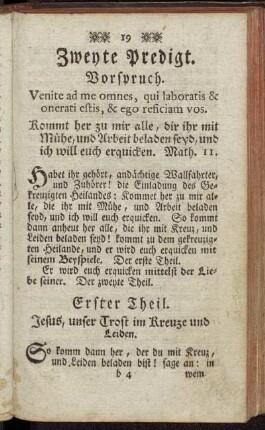 19
Zweyte Predigt.
Vorspruch.
Venite ad me omnes, qui laboratis &
onerati estis, & ego reficiam vos.
Kommt her zu mir alle, dir ihr mit
Mühe, und Arbeit beladen seyd, und
ich will euch erquicken. Math. 11.
Habet ihr gehört, andächtige Wallfahrter,
und Zuhörer! die Einladung des Ge-
kreuzigten Heilandes: Kommet her zu mir al-
le, die ihr mit Mühe, und Arbeit beladen
seyd, und ich will euch erquicken. So kommt
dann anheut her alle, die ihr mit Kreuz, und
Leiden beladen seyd! kommt zu dem gekreuzig-
ten Heilande, und er wird euch erquicken mit
seinem Beyspiele. Der erste Theil.
Er wird euch erquicken mittelst der Lie-
be seiner. Der zweyte Theil.
Erster Theil.
Jesus, unser Trost im Kreuze und
Leiden.
So komm dann her, der du mit Kreuz,
und Leiden beladen bist! sage an: in
b 4 wem